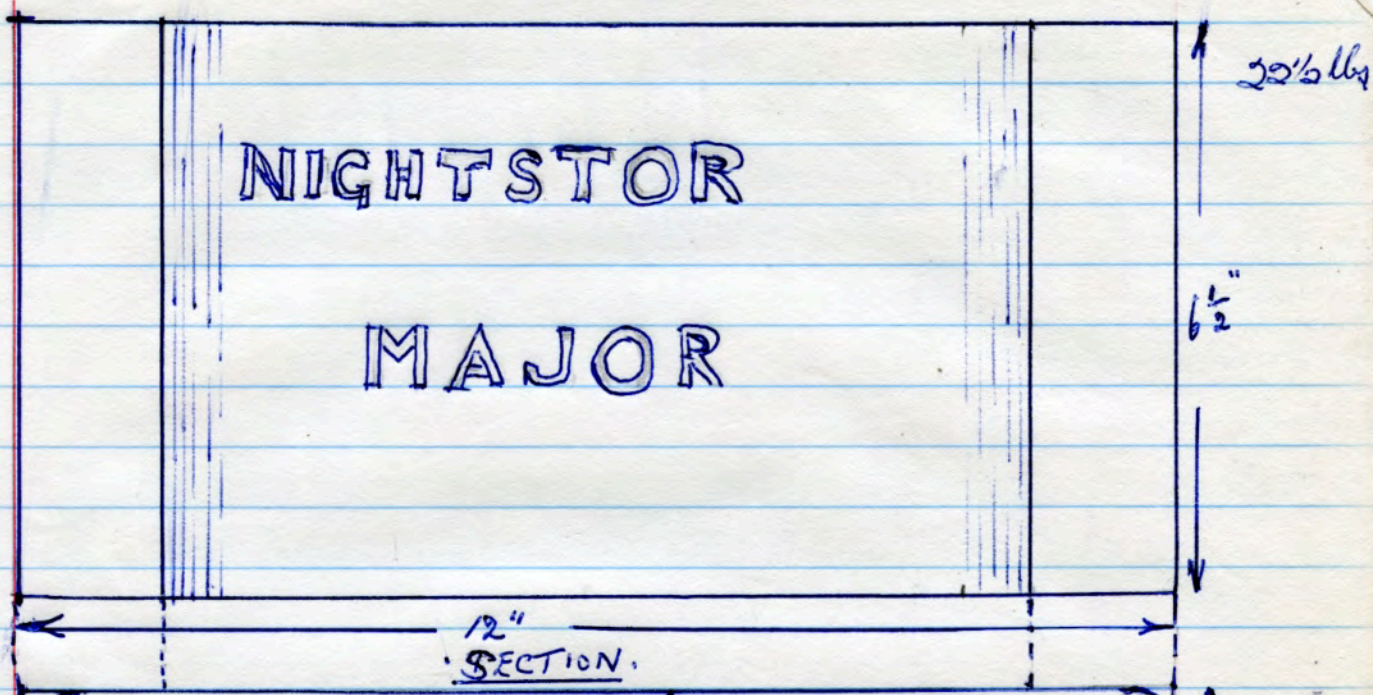 22½ lbs
NIGHTSTOR
6½"
MAJOR
12"
SECTION.